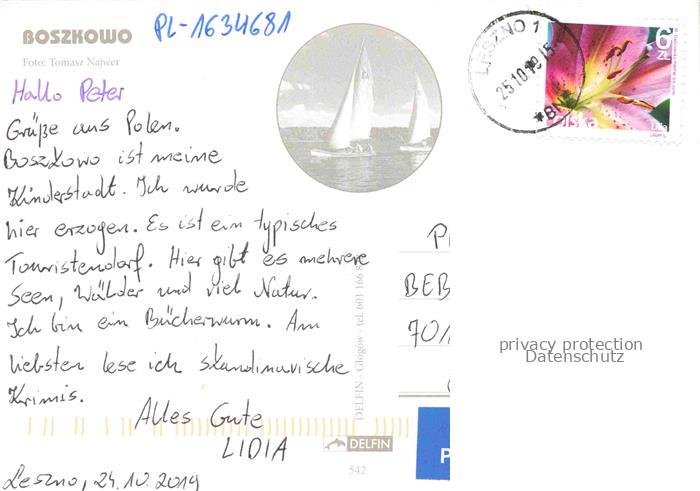 BOSZKOWO
PL-1634681
Foto: Tomasz Najwer
Hallo Peter
Grüße aus Polen.
Boszkowo ist meine
Kinderstadt. Ich wurde
hier erzogen. Es ist ein typisches
Touristendorf. Hier gibt es mehrere
Seen, Wälder und viel Natur.
Ich bin ein Bücherwurm. Am
liebsten lese ich skandinavische
Krimis.
Alles Gute
LIDIA
Leszno, 24.10.2019
DELFIN - Głogów - tel. 601 166 8
DELFIN
542
LESZNO 1
25 10 19
6 ZŁ
Polska
BEB
701
P
privacy protection
Datenschutz